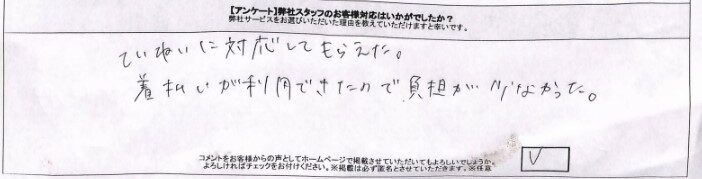 【アンケート】弊社スタッフのお客様対応はいかがでしたか？
弊社サービスをお選びいただいた理由を教えていただけますと幸いです。
ていねいに対応してもらえた。
着払いが利用できたので負担が少なかった。
コメントをお客様からの声としてホームページで掲載させていただいてもよろしいでしょうか。
よろしければチェックをお付けください。※掲載は必ず匿名とさせていただきます。※任意